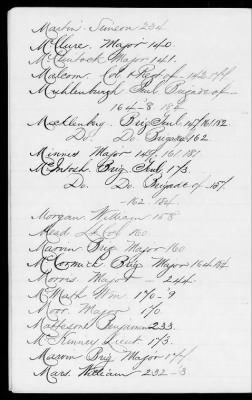 Martin. Simson 234
McClure. Major 140
McClintock Major 141.
Malcom. Col & Regt of 142. 144
Muhlenburgh Genl Brigade of
164-8 182
Mecklenburg. Brig Genl 147/161/182
Do. Do. Brigade 162
Minnis Major 147. 161. 181
McIntosh. Brig Genl 173.
Do. Do. Brigade of 157.
162 184.
Morgan William 158
Mead Lt Col 160.
Marvin Brig Major 160
McCormick Brig Major 164.184
Morris. Major - 244.
McMath Wm 170-9
Moor. Major 170
Matteson Benjamin 233.
McKinney Lieut 173.
Marvin Brig. Major 174
Mars. William - 232-3